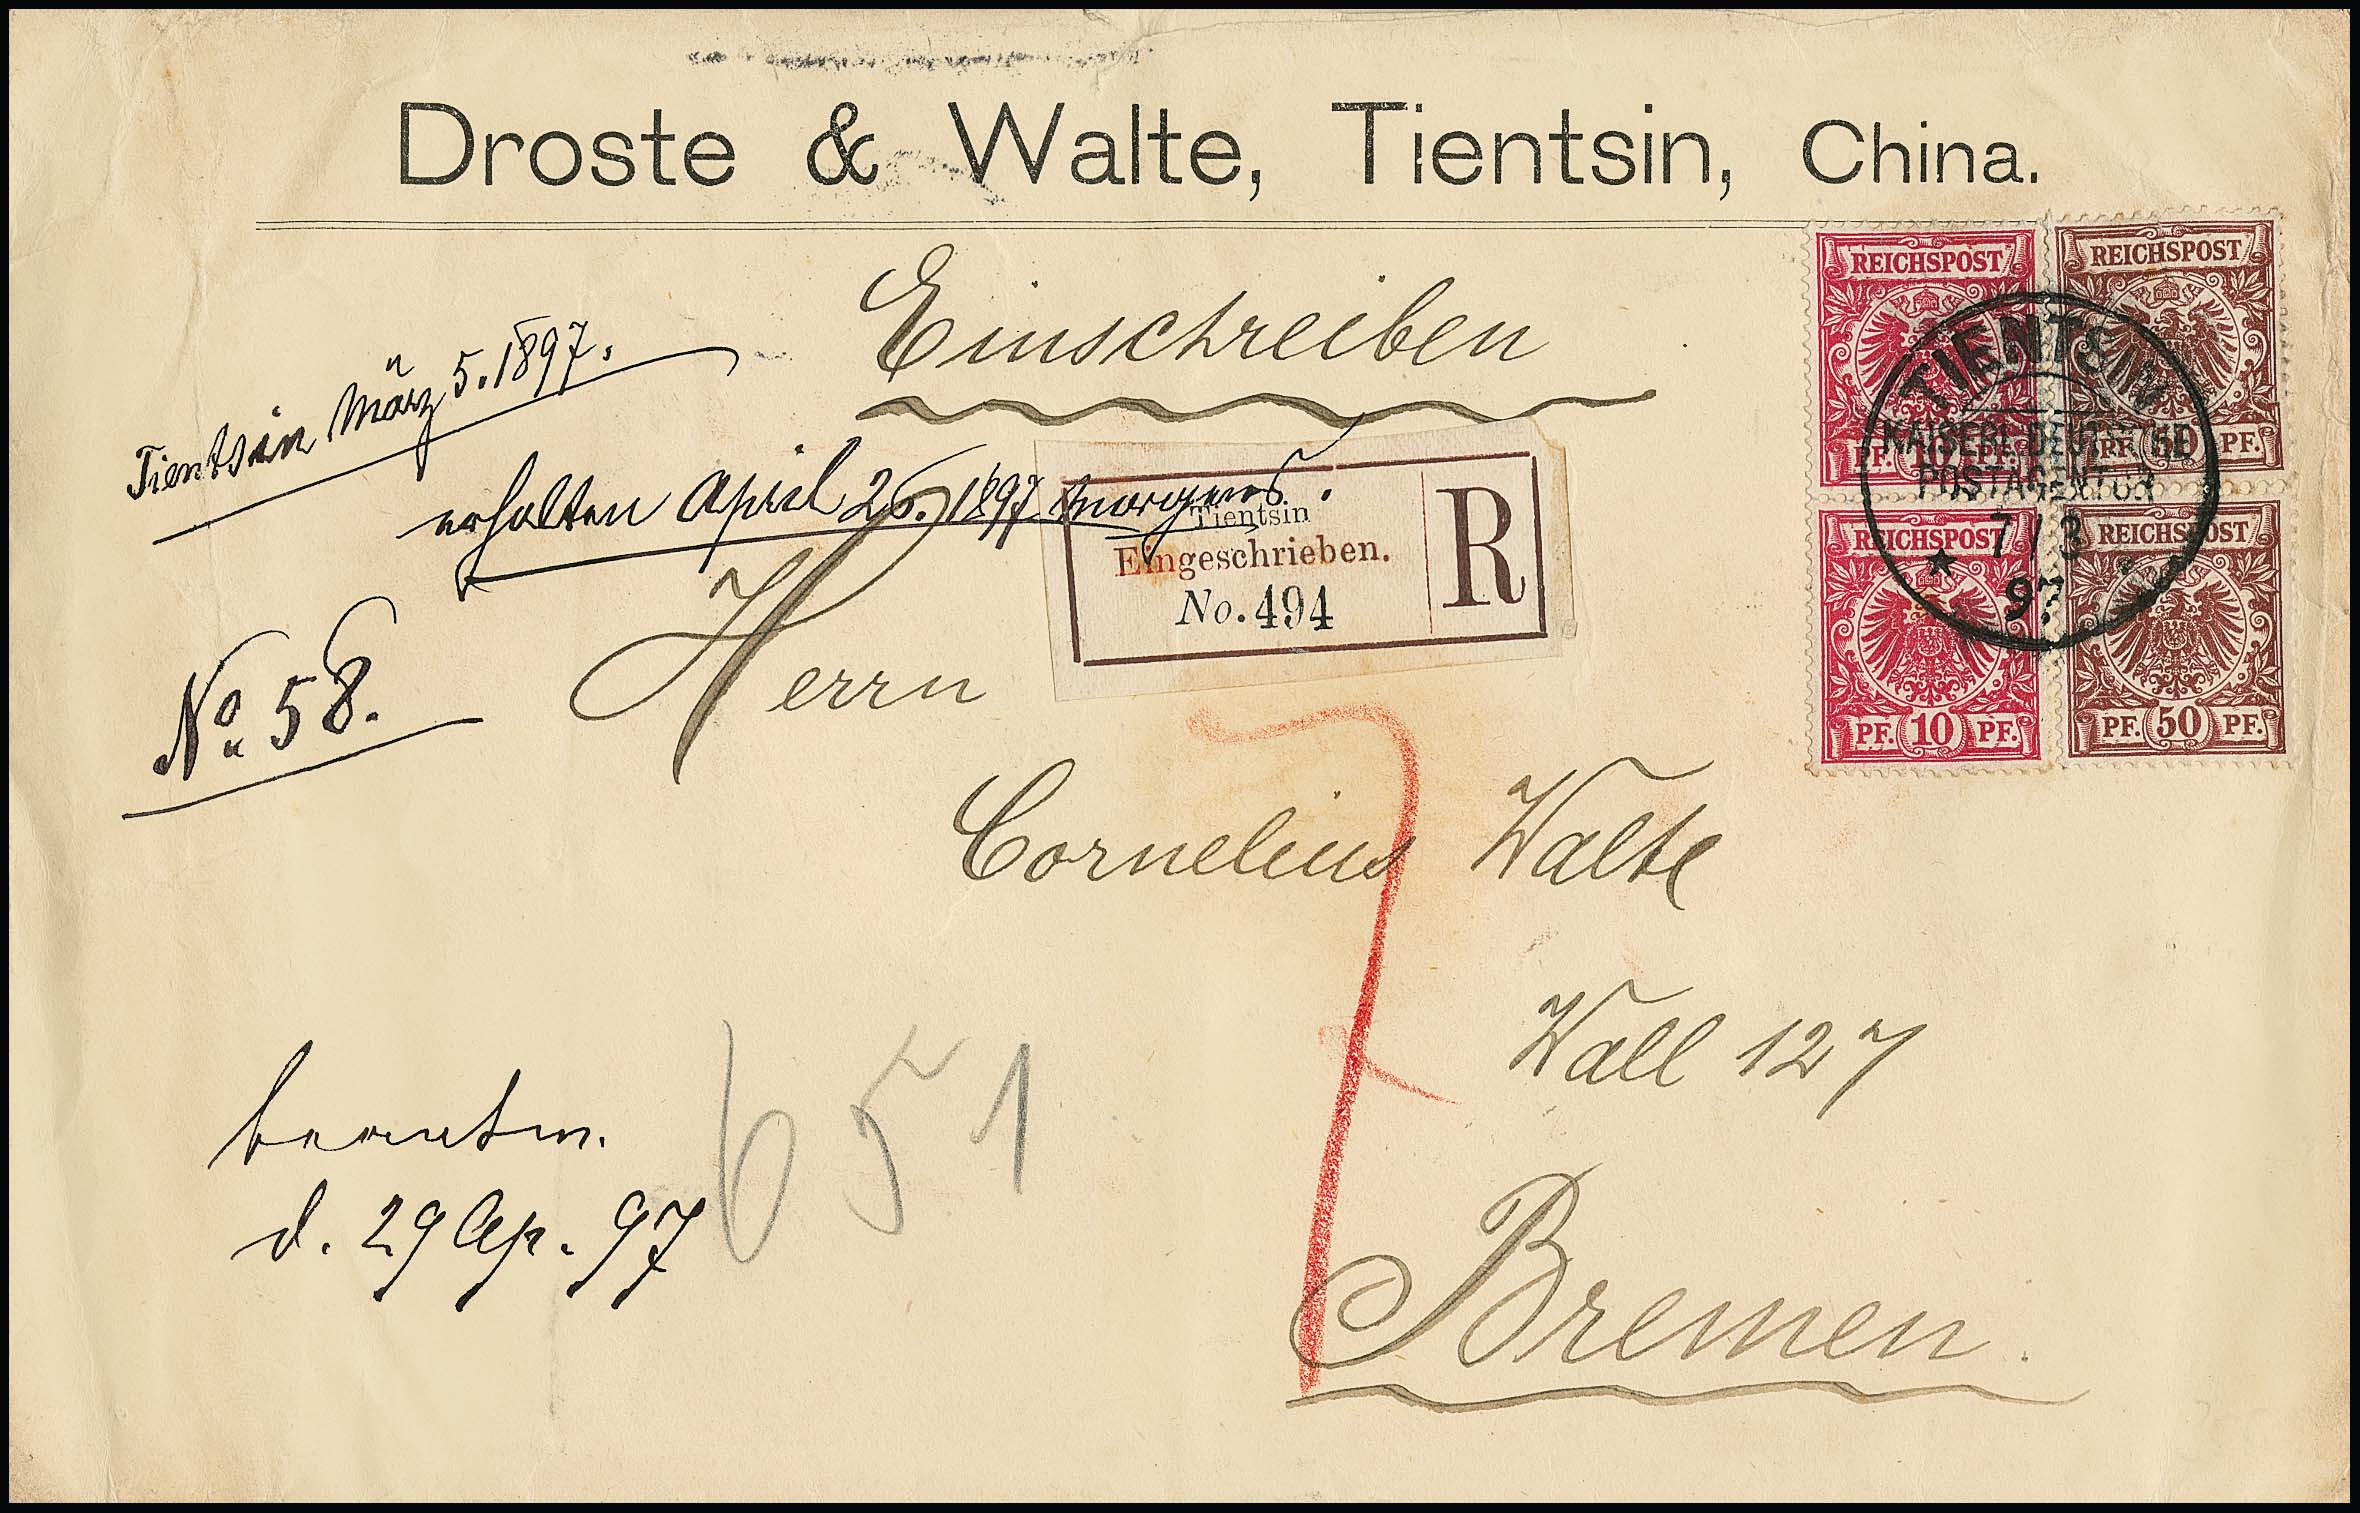 Droste & Walte, Tientsin, China.
Einschreiben
Tientsin März 5. 1897.
erhalten April 26. 1897 morgens.
No 58.
Tientsin
Eingeschrieben.
No. 494
R
REICHSPOST
PF. 10 PF.
REICHSPOST
PF. 50 PF.
REICHSPOST
PF. 10 PF.
REICHSPOST
PF. 50 PF.
TIENTSIN
KAISERL. DEUTSCHE
POSTAGENTUR
7/3
97
Herrn
Cornelius Walte
Wall 127
Bremen.
beantw.
d. 29 Ap. 97
651